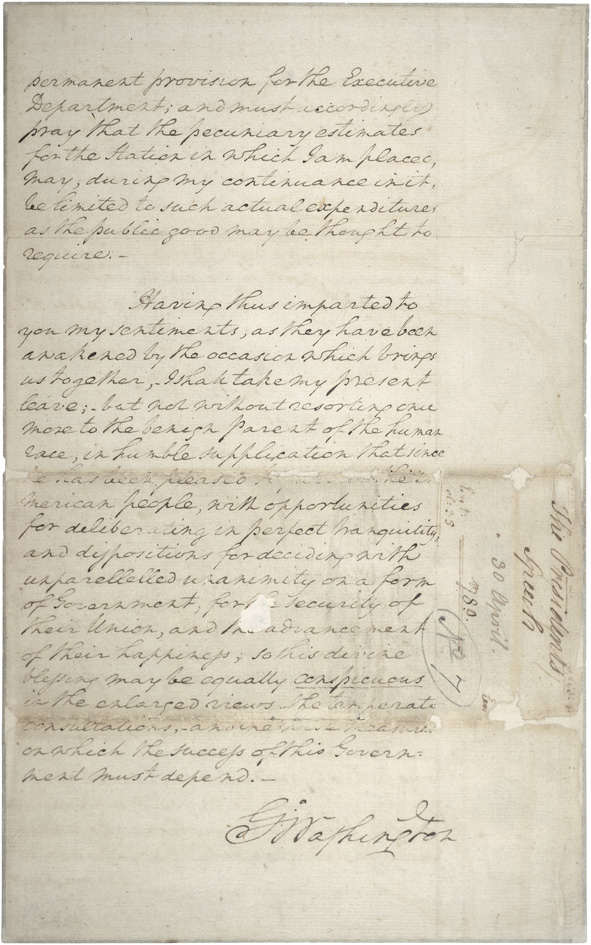 permanent provision for the Executive
Department; and must accordingly
pray that the pecuniary estimates
for the Station in which I am placed,
may, during my continuance in it,
be limited to such actual expenditures
as the public good may be thought to
require. –
Having thus imparted to
you my sentiments, as they have been
awakened by the occasion which brings
us together, I shall take my present
leave; but not without resorting once
more to the benign Parent of the human
race, in humble supplication that since
he has been pleased to
merican people, with opportunities
for deliberating in perfect tranquility,
and dispositions for deciding with
unparellelled unanimity on a form
of Government, for the security of
their Union, and the advancement
of their happiness; so this divine
blessing may be equally conspicuous
in the enlarged views the temperate
consultations, and
on which the success of this Govern-
ment must depend. –
G. Washington
The Presidents
Speech
30 April
No 7